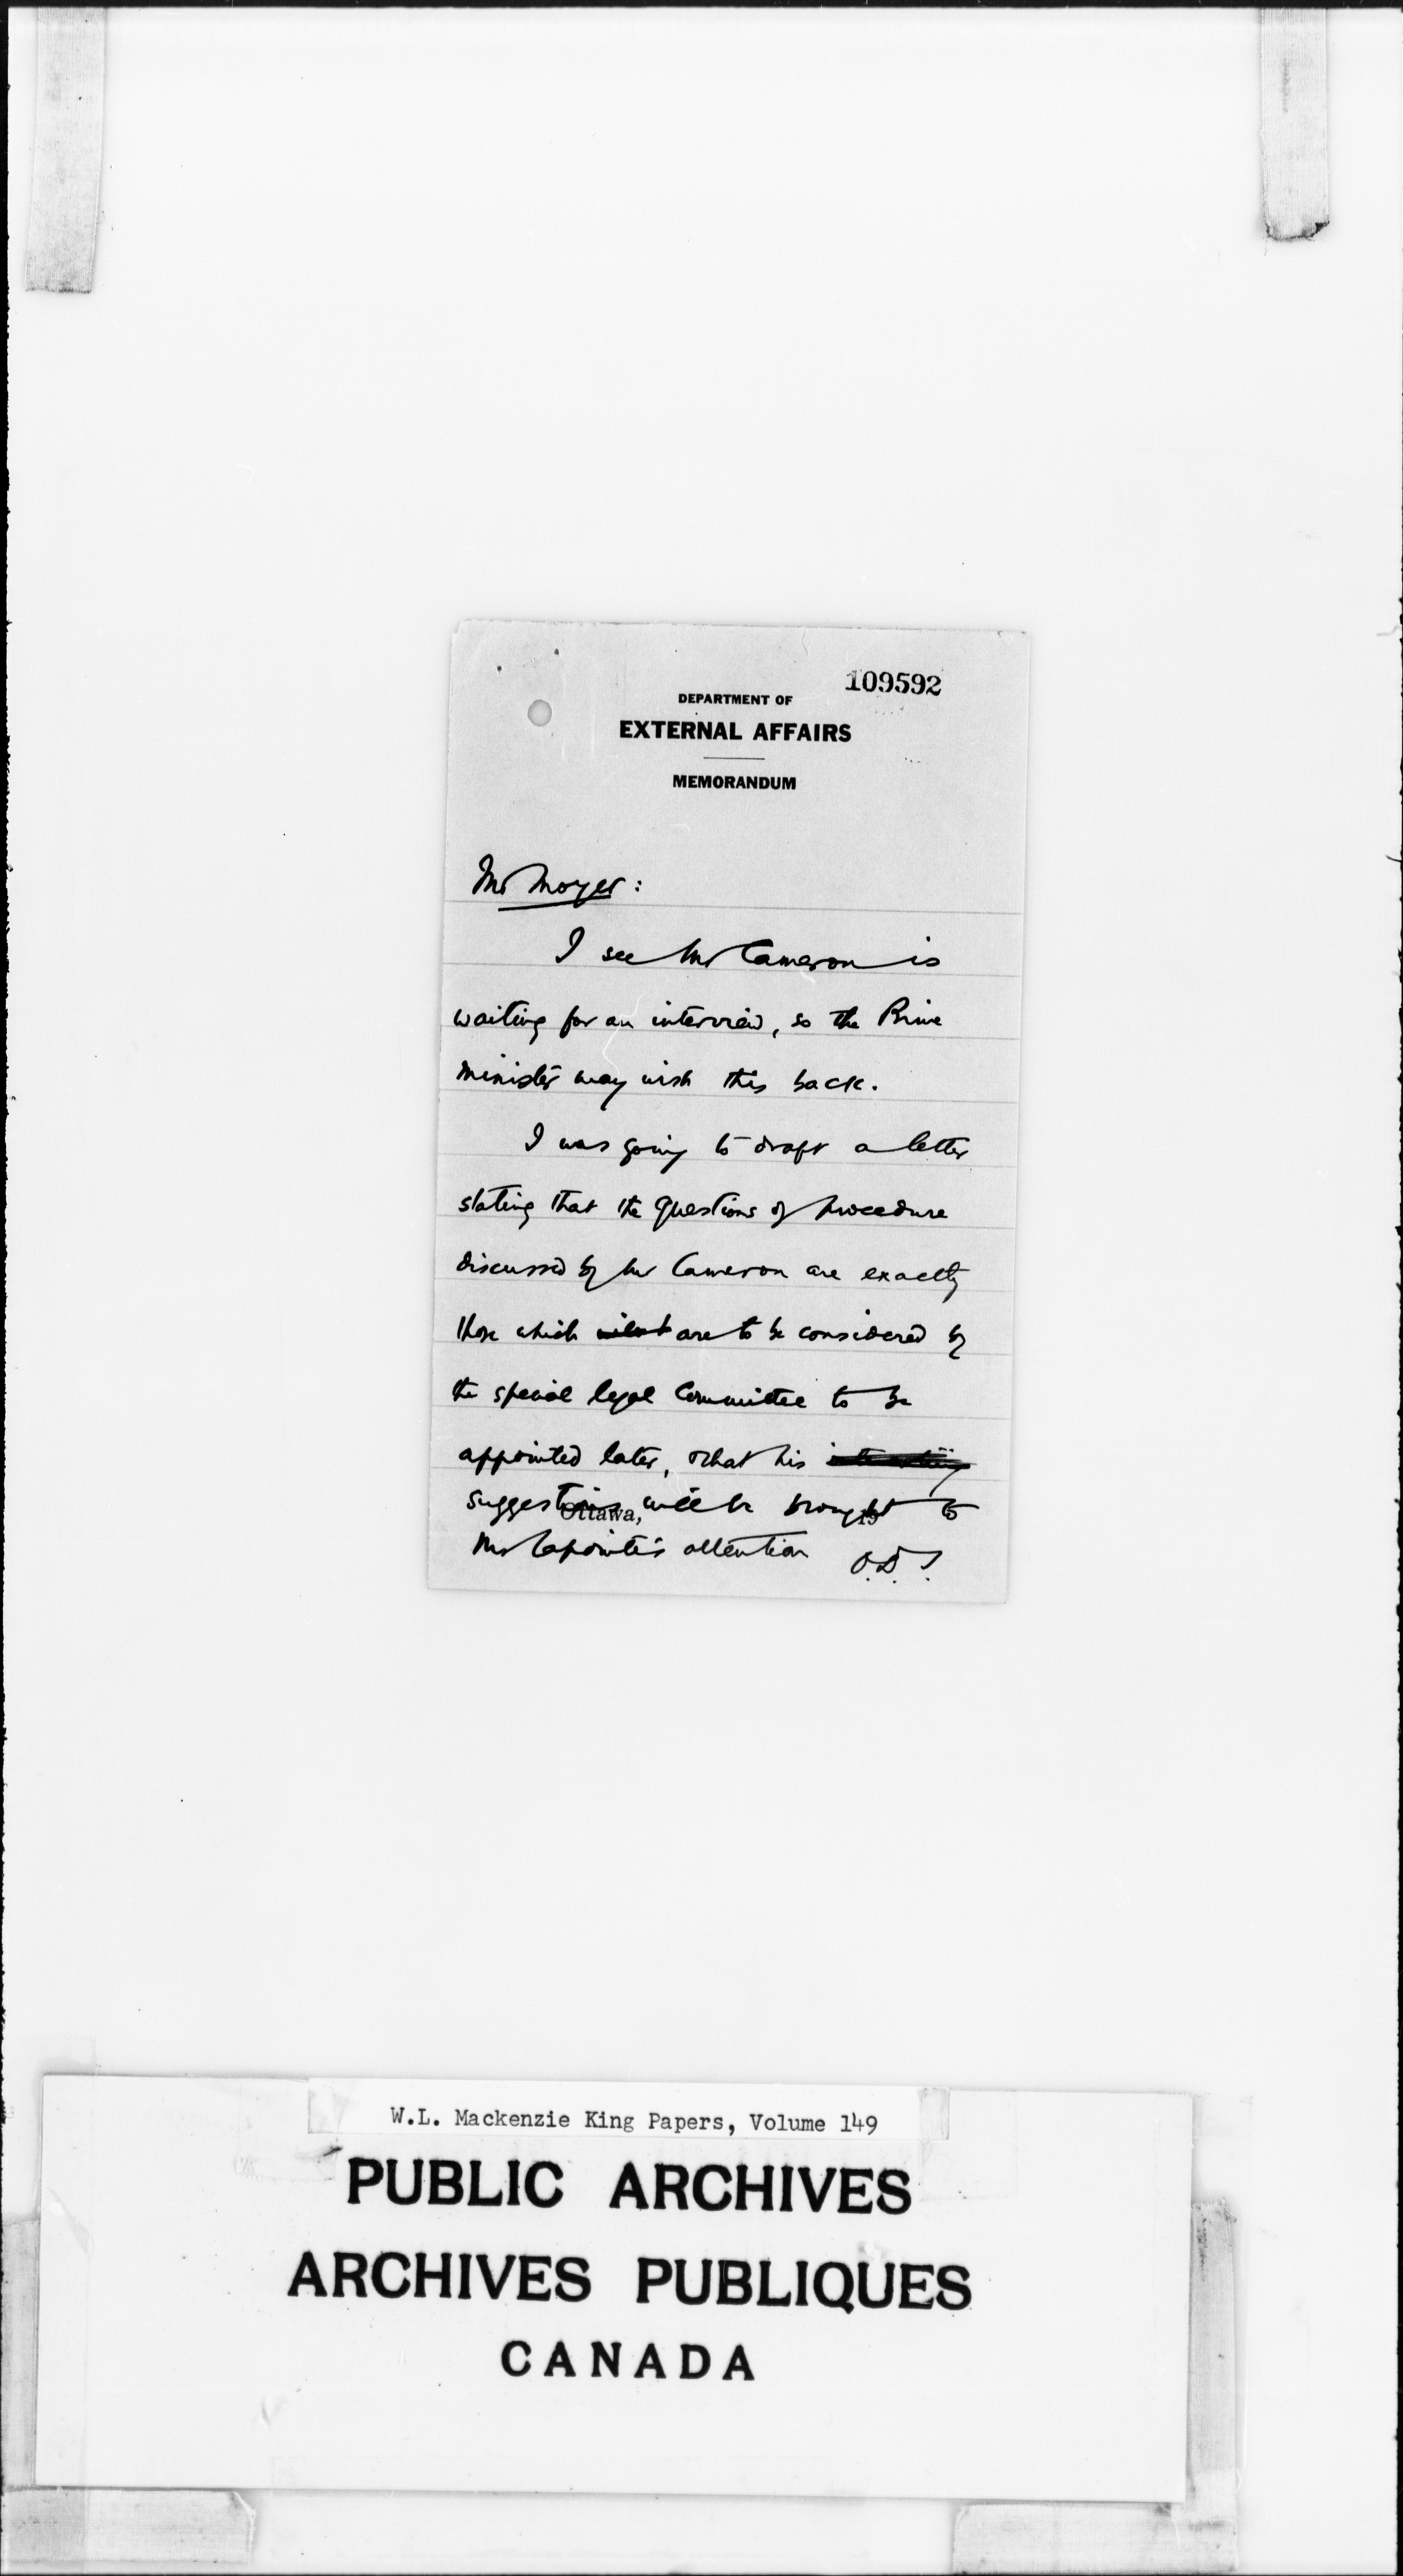 109592
DEPARTMENT OF
EXTERNAL AFFAIRS
MEMORANDUM
Mr Moyer:
I see Mr Cameron is
waiting for an interview, so the Prime
Minister may wish this back.
I was going to draft a letter
stating that the questions of procedure
discussed by Mr Cameron are exactly
those which are to be considered by
the special legal Committee to be
appointed later, & that his
suggestions will be brought to
Ottawa, 19
Mr Lapointe's attention O.D.S.
W.L. Mackenzie King Papers, Volume 149
PUBLIC ARCHIVES
ARCHIVES PUBLIQUES
CANADA